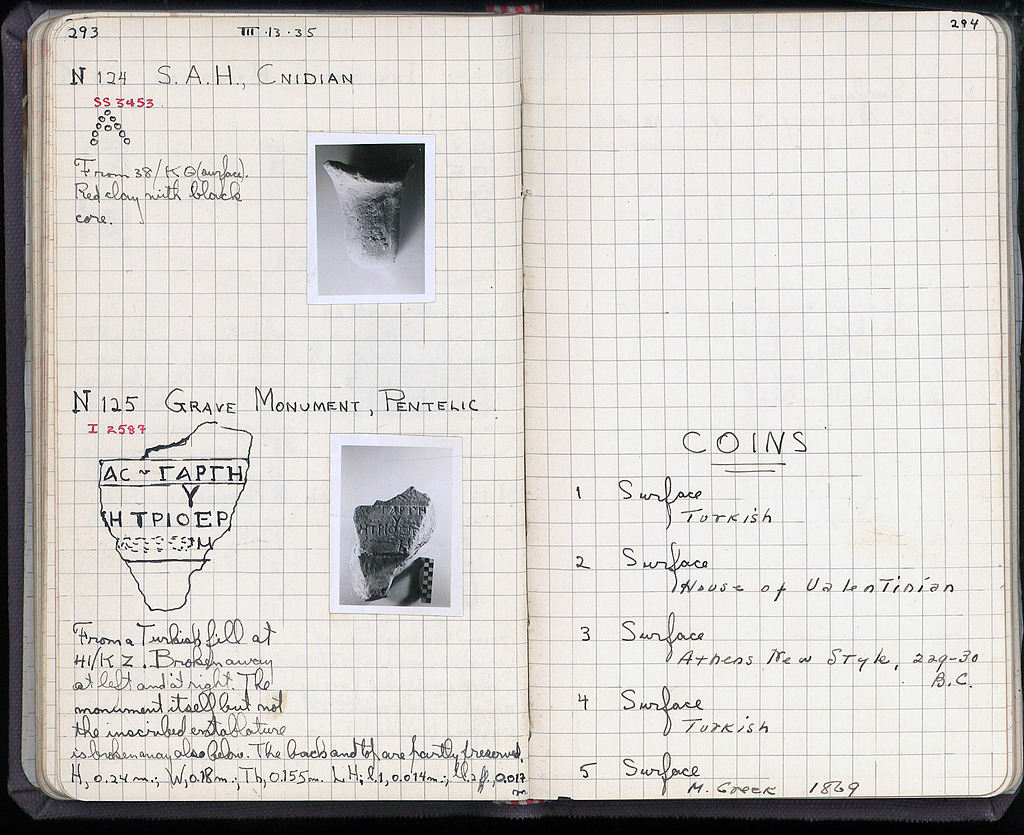 293
III·13·35
N 124 S.A.H., CNIDIAN
SS 3453
From 38/ΚΘ (surface).
Red clay with black
core.
N 125 GRAVE MONUMENT, PENTELIC
I 2587
ΑC ~ ΓΑΡΓΗ
Υ
Η ΤΡΙΟΕΡ
From a Turkish fill at
41/Κ Ζ. Broken away
at left and at right. The
monument itself but not
the inscribed entablature
is broken away also below. The back and top are partly preserved.
H, 0.24 m.; W, 0.18 m.; Th, 0.155 m. LH; l.1, 0.014 m.; ll.2 ff, 0.017
m.
294
COINS
1 Surface
Turkish
2 Surface
House of Valentinian
3 Surface
Athens New Style, 229-30
B.C.
4 Surface
Turkish
5 Surface
M. Greek 1869